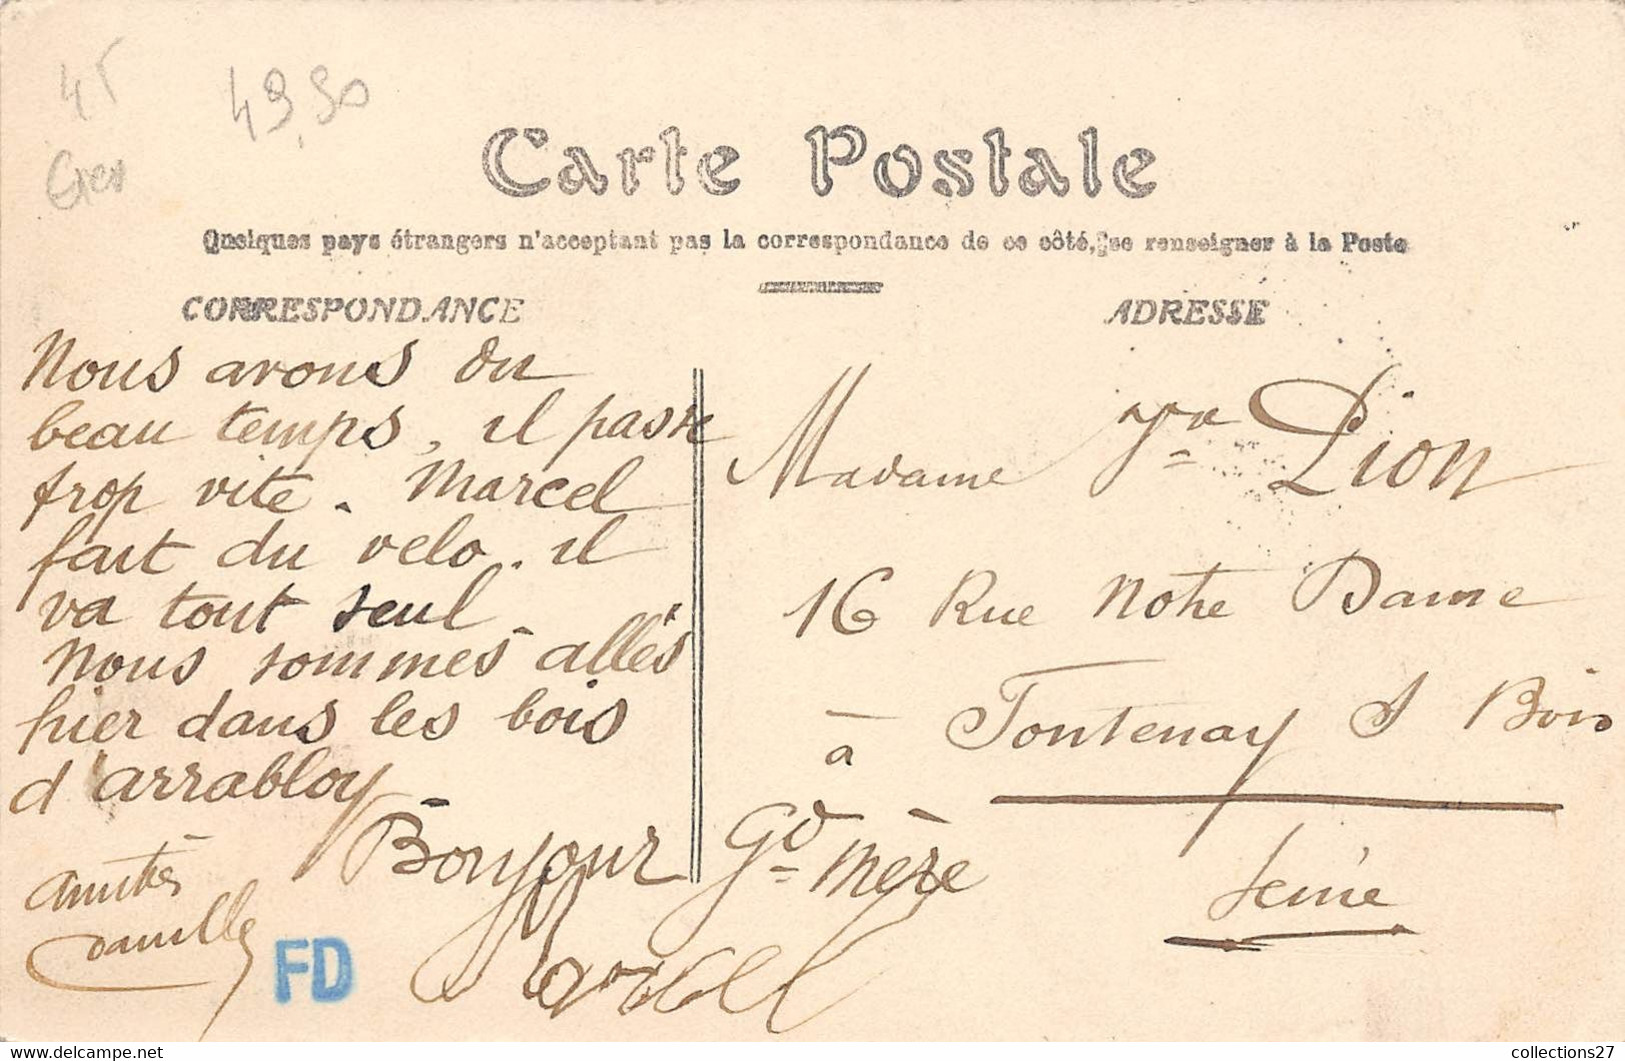 45
49,50
Carte Postale
Quelques pays étrangers n'acceptant pas la correspondance de ce côté, se renseigner à la Poste
CORRESPONDANCE
Nous avons du
beau temps, il passe
trop vite. Marcel
fait du velo. il
va tout seul
Nous sommes allés
hier dans les bois
d'arrabloy
Amitiés
Camille
Bonjour Gd Mère
Marcel
FD
ADRESSE
Madame Vve Lion
16 Rue Notre Dame
à Fontenay s Bois
Seine
collections27